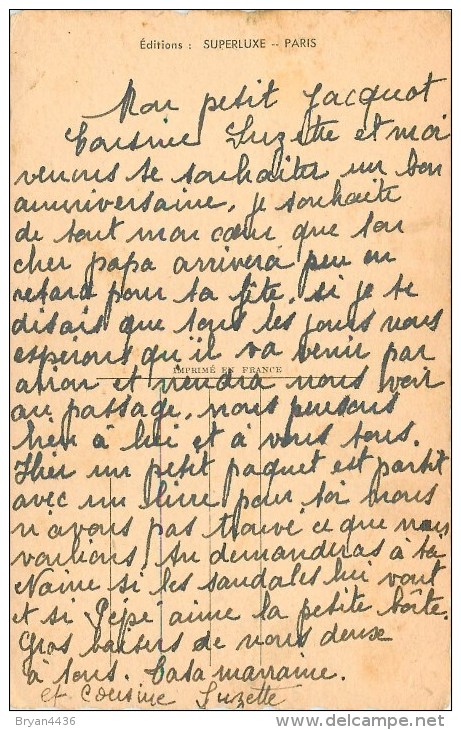 Éditions : SUPERLUXE -- PARIS
Mon petit Jacquot
Cousine Suzette et moi
venons te souhaiter un bon
anniversaire, je souhaite
de tout mon cœur que ton
cher papa arrivera peu en
retard pour ta fête, si je te
disais que tous les jours nous
esperons qu'il va venir par
IMPRIMÉ EN FRANCE
avion et viendra nous voir
au passage, nous pensons
bien à lui et à vous tous.
Hier un petit paquet est partit
avec un livre pour toi nous
n'avons pas trouvé ce que nous
voulions, tu demanderas à ta
si les sandales lui vont
et si Pépé aime la petite boîte.
Gros baisers de nous deux
à tous. marraine.
et Cousine Suzette
Bryan4436